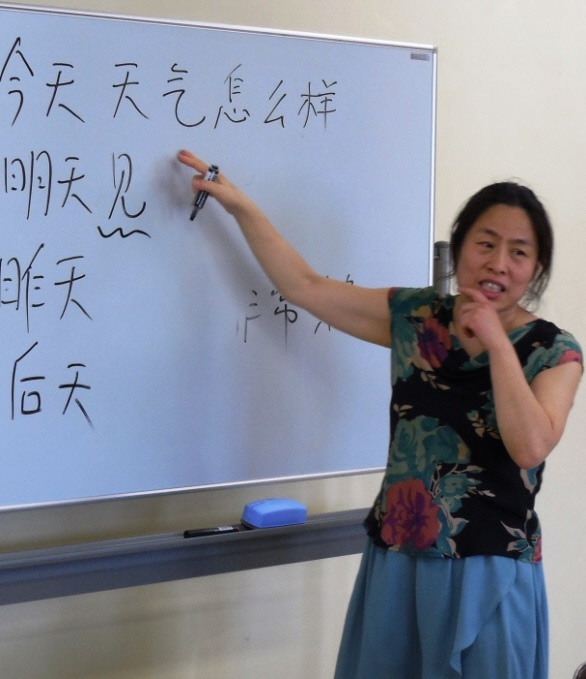 今天天气怎么样
明天见
昨天
后天
常